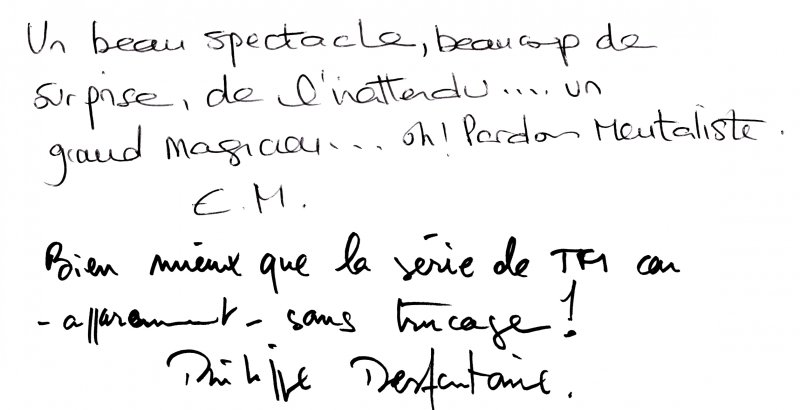 Un beau spectacle, beaucoup de
surprise, de l'inattendu.... un
grand magicien... oh! Pardon Mentaliste.
C.M.
Bien mieux que la série de TF1 car
- apparemment - sans trucage !
Philippe Desfontaine.